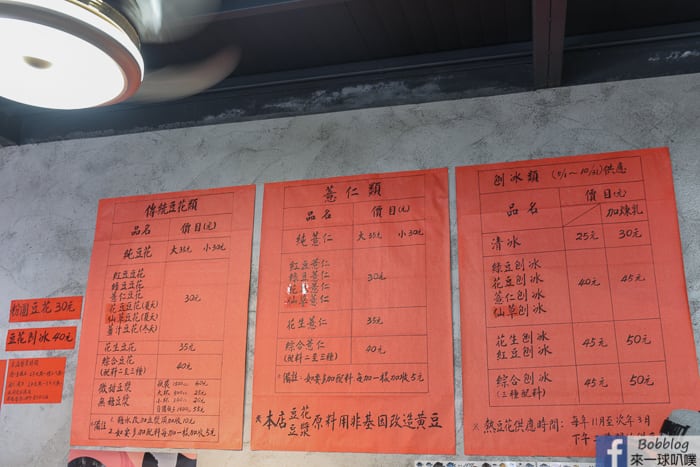 粉圓豆花 30元
豆花刨冰 40元
傳統豆花類
品名 價目(元)
純豆花 大35元 小30元
紅豆豆花
綠豆豆花
薏仁豆花
花豆豆花(夏天)
仙草豆花(夏天)
薑汁豆花(冬天)
30元
花生豆花 35元
綜合豆花
(配料二至三種)
40元
微甜豆漿
無糖豆漿
備註:1.糖水改加豆漿須加收10元
2.如要多加配料每加一樣加收5元
薏仁類
品名 價目(元)
純薏仁 大35元 小30元
紅豆薏仁
綠豆薏仁
花豆薏仁
仙草薏仁
30元
花生薏仁 35元
綜合薏仁
(配料二至三種)
40元
備註:如要多加配料每加一樣加收5元
本店豆花豆漿原料用非基因改造黃豆
刨冰類 (5/1~10/31)供應
品名 價目(元)
加煉乳
清冰 25元 30元
綠豆刨冰
花豆刨冰
薏仁刨冰
仙草刨冰
40元 45元
花生刨冰
紅豆刨冰
45元 50元
綜合刨冰
(三種配料)
45元 50元
熱豆花供應時間: 每年11月至次年3月
下午
Bobblog
來一球叭噗